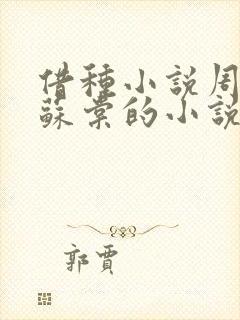 借種小説周
蘇棠的小說
郭賈